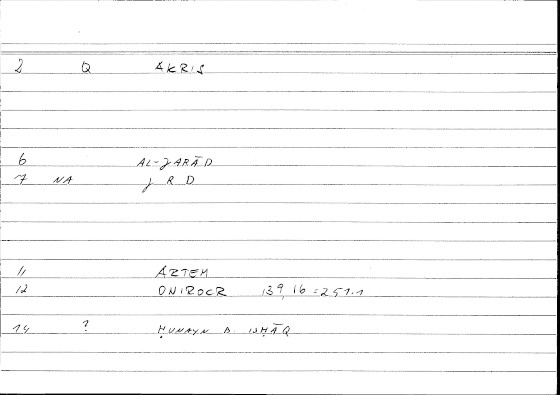 2 Q AKRIS
6 AL-ǦARĀD
7 NA ǧ R D
11 ARTEM
12 ONIROCR 139,16 = 251.1
14 ? ḤUNAYN B ISḤĀQ